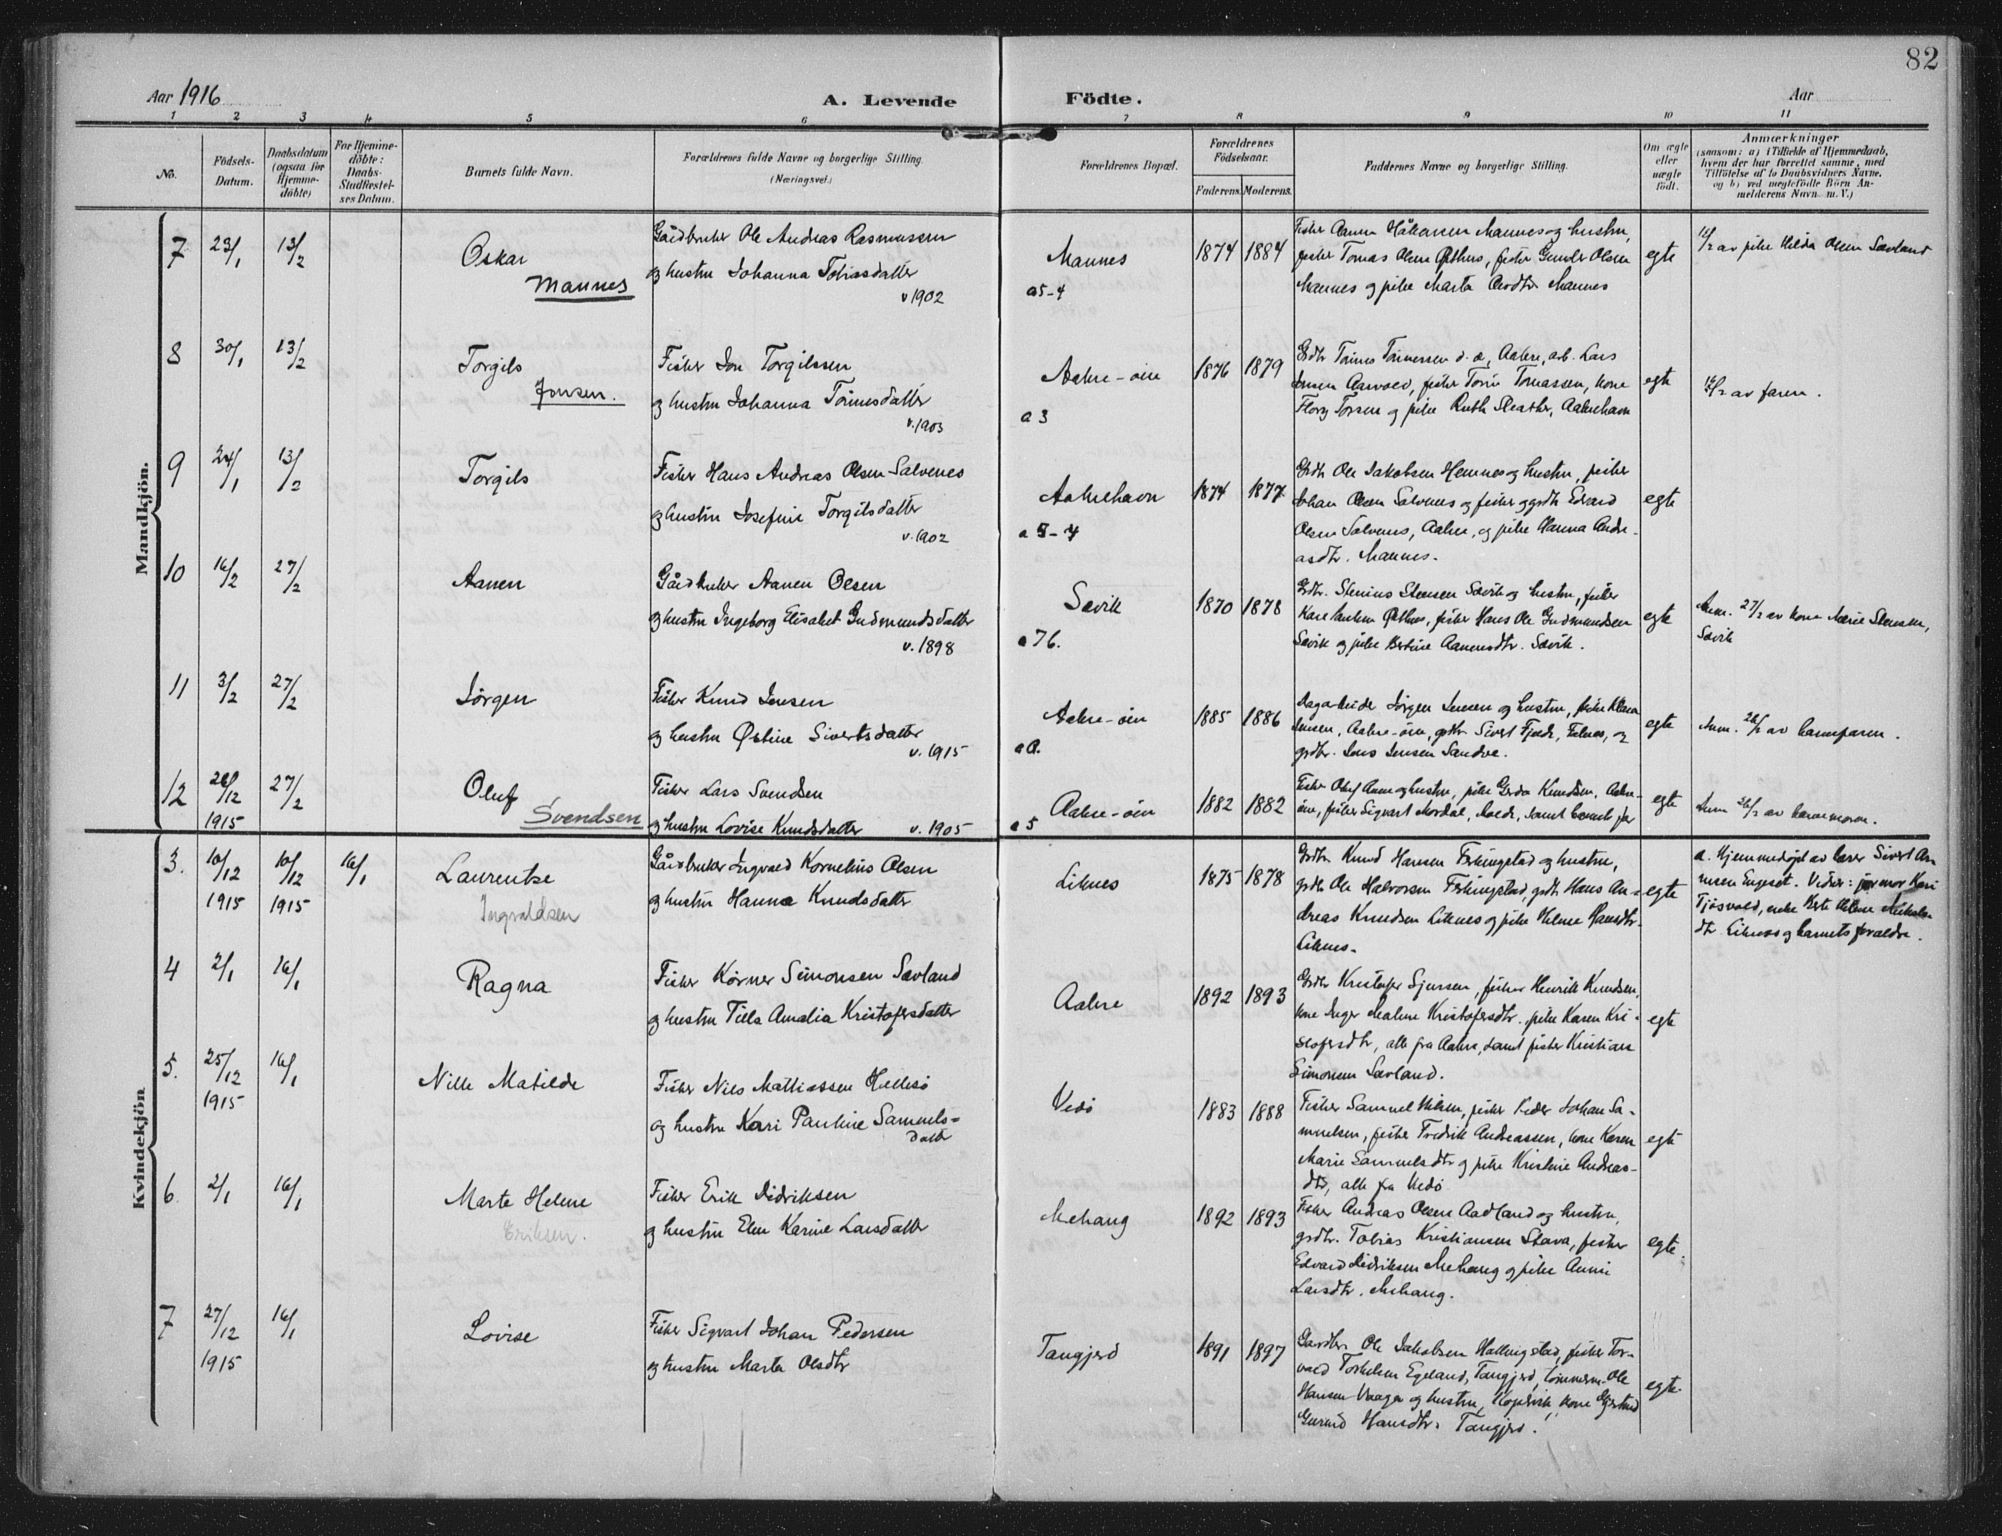 82
Aar 1916
A. Levende Födte.
Aar
1 2 3 4 5 6 7 8 9 10 11
No.
Födsels-Datum.
Daabsdatum (ogsaa for Hjemme-döbte)
For Hjemme-döbte: Daabs-Stadfæstel-ses Datum.
Barnets fulde Navn.
Forældrenes fulde Navne og borgerlige Stilling. (Næringsvei.)
Forældrenes Bopæl.
Forældrenes Födselsaar.
Faderens. Moderens.
Faddernes Navne og borgerlige Stilling.
Om ægte eller uægte födt.
Anmærkninger
(saasom: a) i Tilfælde af Hjemmedaab, hvem der har forrettet samme, med Tilföielse af to Daabsvidners Navne, og b) ved uægtefödte Börn Anmelderens Navn m. V.)
Mandkjön.
7 23/1 13/2 Oskar Mannes
Gårdbruker Ole Andreas Rasmussen
og hustru Johanna Tobiasdatter
v 1902
Mannes
a5-4
1874 1884
fisker Tomas Olsen Østhus, fisker Gunder Olsen
Mannes og pike Marta Mannes
egte
av pike Hilda Olsen Sævland
8 30/1 13/2 Torgils Jonsen.
Fisker Jon Torgilssen
og hustru Johanna Tönnesdatter
v. 1903
Aakre-öin
a 3
1876 1879
Grdbr Tönnes Tönnessen d. æ, Aakre, arb. Lars
Jensen Aarvold, fisker Tomassen, kone
Torsen og pike Ruth Aakrehavn
egte
av faren.
9 24/1 13/2 Torgils
Fisker Hans Andreas Olsen Salvenes
og hustru Josefine Torgilsdatter
v. 1902
Aakrehavn
a 5-4
1874 1877
Grdbr Ole Jakobsen Hemnes og hustru, fisker
Johan Olsen Salvenes og fisker og grdb Edvard
Olsen Salvenes, Aakre, og pike Hanna Andre-
asdtr. Mannes.
egte
10 16/2 27/2 Aanen
Gårdbruker Aanen Olsen
og hustru Ingeborg Elisabet Gudmundsdatter
v. 1898
Sævik
a 76.
1870 1878
Grdbr. Stensen Sævik og hustru, fisker
Østhus, fisker Hans Ole Gudmundsen
Sævik og pike Bertine Aanensdtr. Sævik.
egte
Anm. 27/2 av kone Marie Stensen,
Sævik
11 3/2 27/2 Jörgen
Fisker Knud Jensen
og hustru Østine Sivertsdatter
v. 1915
Aakre-öin
a 0.
1885 1886
Jörgen Jensen og hustru, pike Klara
Jensen, Aakre-öin, grdbr. Sivert Fjelde, Falnes, og
grdbr. Jens Jensen Sandve.
egte
Anm. 26/2 av barnefaren.
12 26/12 1915 27/2 Oluf Svendsen
Fisker Lars Svendsen
og hustru Lovise Knudsdatter v. 1905
Aakre-öin
a 5
1882 1882
Fisker Oluf Aune og hustru, pike Gerda Knudsen, Aakre-
öin, fisker Sigvart Nordal, Molde, samt barnets far
egte
Anm 26/2 av barnemoren.
Kvindekjön
3. 10/12 1915 10/12 1915 16/1 Laurentse Ingvaldsen
Gårdbruker Ingvald Kornelius Olsen
og hustru Hanna Knudsdatter
Liknes
1875 1878
Grdbr. Knud Hansen Ferkingstad og hustru,
grdb Ole Halvorsen Ferkingstad, grdb Hans An-
dreas Knudsen Liknes og pike Helene Hansdtr.
Liknes.
egte
a. Hjemmedöpt av lærer Sivert Ar-
nesen Engeset. Vidner: jormor Kari
Tjösvold, enke Berte Helene
dtr. Liknes og barnets foraldre.
4 2/1 16/1 Ragna
Fisker Körner Simonsen Sævland
og hustru Tilla Amalia Kristofersdatter
Aakre
1892 1893
Grdbr Kristofer Sjursen, fisker Henrik Knudsen,
kone Inger Malene Kristofersdtr. pike Karen Kri-
stofersdtr, alle fra Aakre, samt fisker Kristian
Simonsen Sævland.
egte
5. 25/12 1915 16/1 Nille Matilde
Fisker Nils Mathiassen Hellesö
og hustru Kari Pauline Samuels-
datter
Vedö
1883 1888
Fisker Samuel Nilsen, fisker Peder Johan Sa-
muelsen, fisker Fredrik Andreassen, kone Karen
Marie Samuelsdtr og pike Kristine Andreas-
dtr, alle fra Vedö
egte
6. 2/1 16/1 Marte Helene Eriksen.
Fisker Erik Didriksen
og hustru Elen Karine Larsdatter
Mehang
1892 1893
Fisker Andreas Olsen Aadland og hustru,
grdbr. Tobias Kristiansen Stava, fisker
Edvard Didriksen Mehang og pike Anna
Larsdtr. Mehang.
egte
7 27/12 1915 16/1 Lovise
Fisker Sigvart Johan Pedersen
og hustru Marta Olsdtr
Tangjerd
1891 1897
Gardbr. Ole Jakobsen Hallingstad, fisker Tor-
vald Torkelsen Egeland, Tangjerd, tömmerm. Ole
Hansen Vaage og hustru, Kopervik, kone
Gurine Hansdtr. Tangjerd.
egte